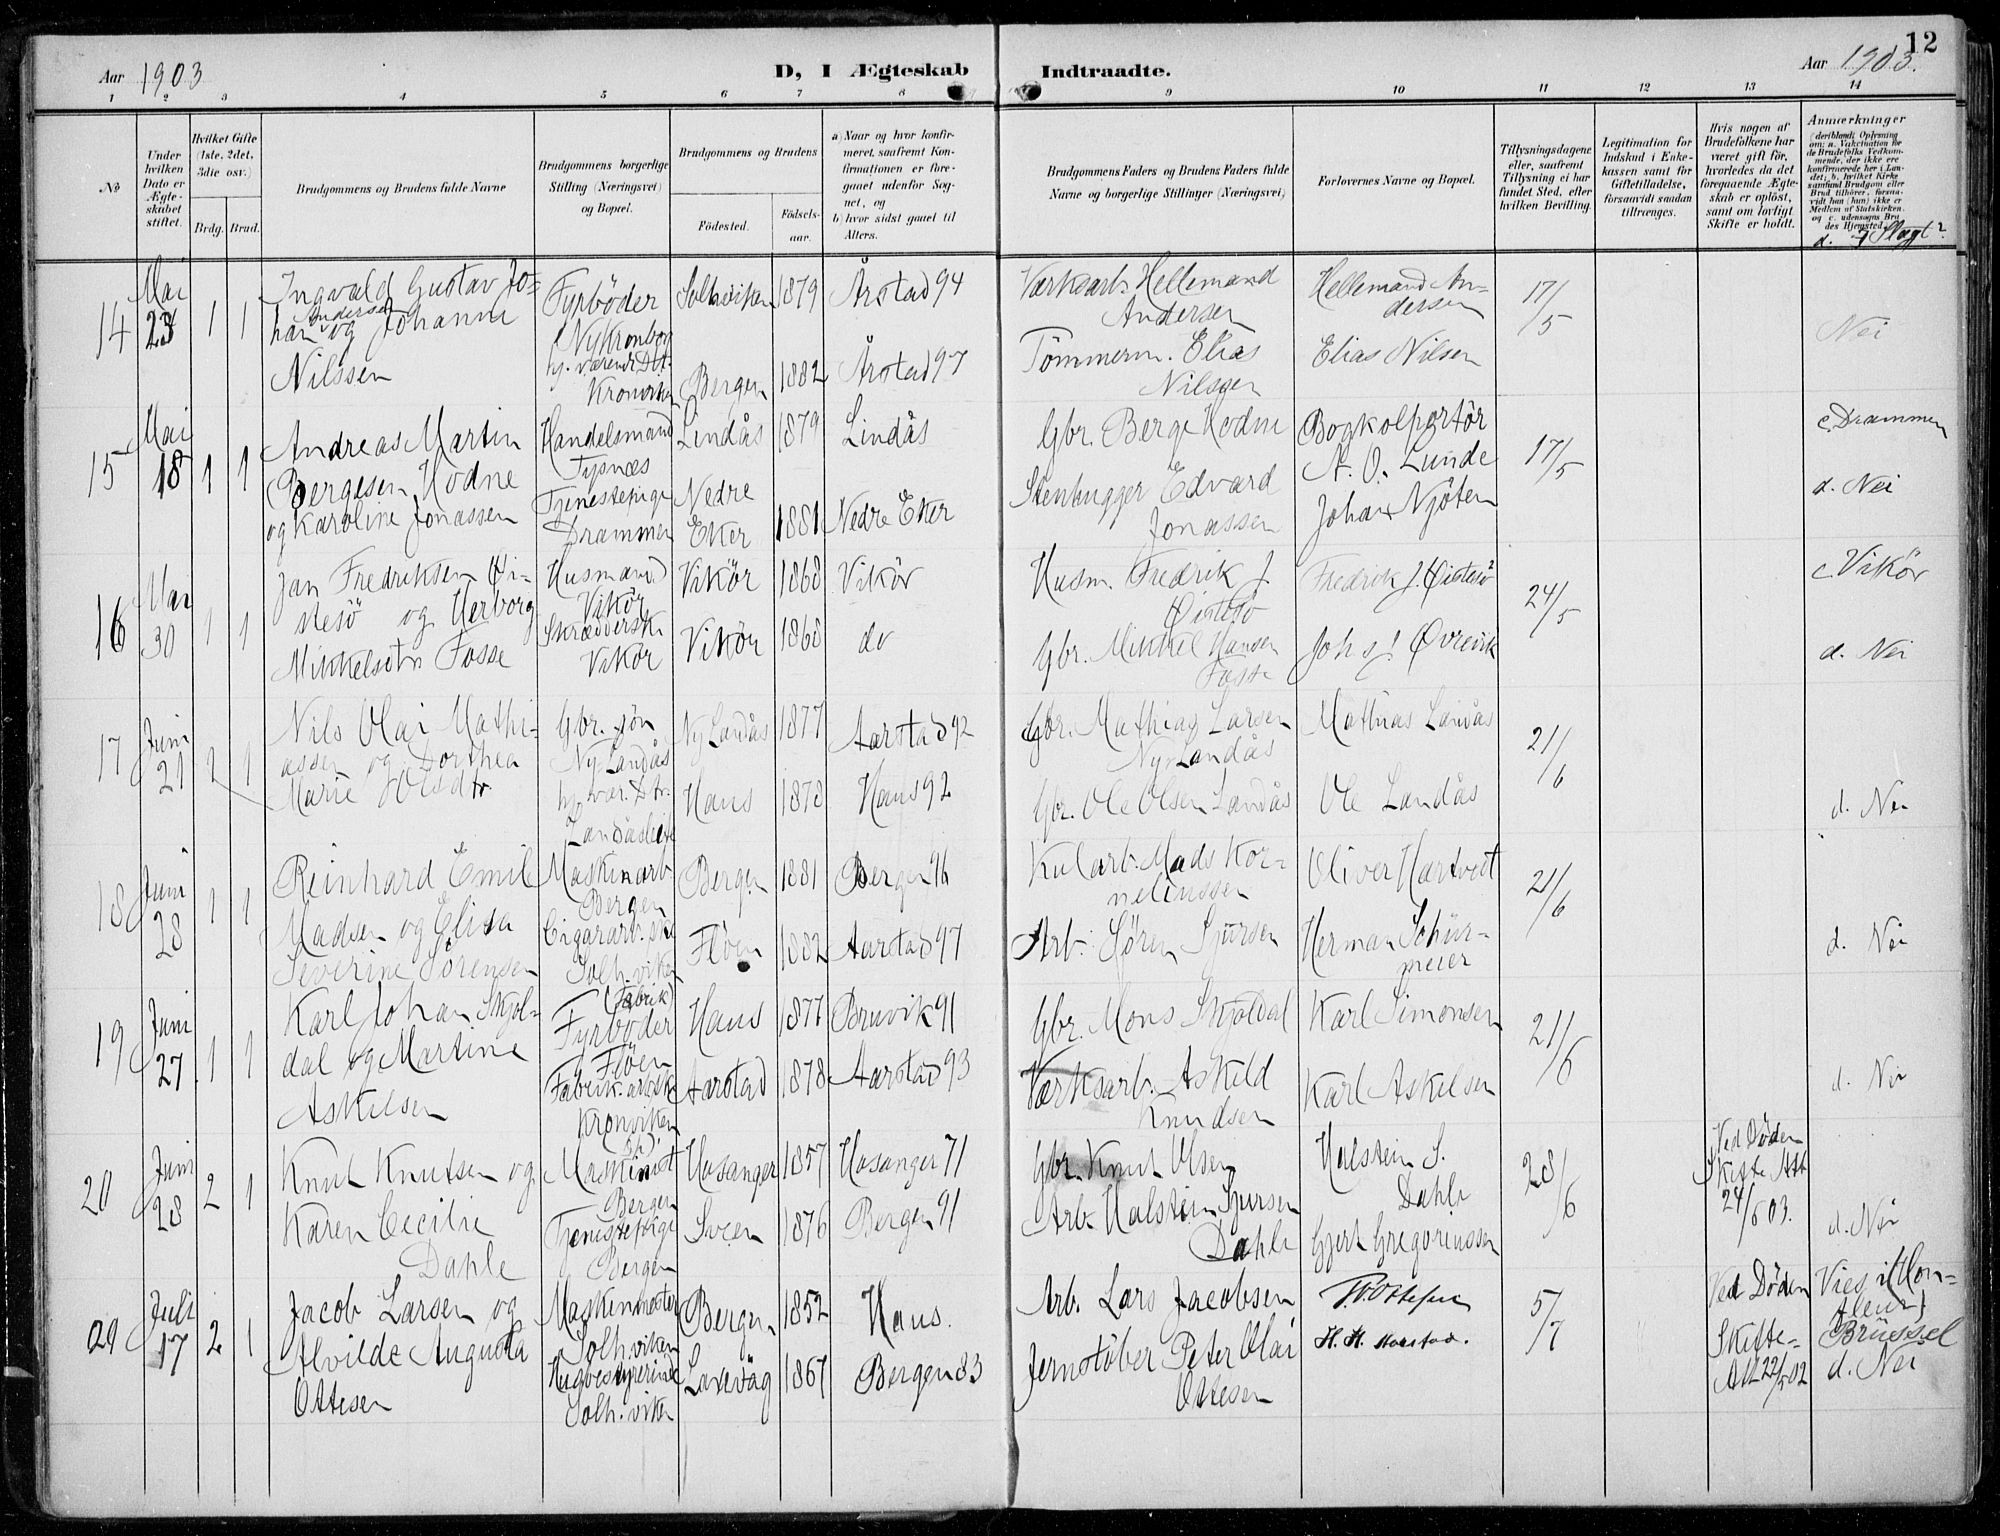 12
Aar 1903
D, I Ægteskab
Indtraadte.
Aar 1903.
1 2 3 4 5 6 7 8 9 10 11 12 13 14
No
Under hvilken Dato er Ægteskabet stiftet.
Hvilket Gifte (1ste, 2det, 3die osv.)
Brdg. Brud.
Brudgommens og Brudens fulde Navne
Brudgommens borgerlige Stilling (Næringsvei) og Bopæl.
Brudgommens og Brudens
Fødested.
Fødsels-aar.
a) Naar og hvor konfirmeret, saafremt Konfirmationen er foregaaet udenfor Sognet, og
b) hvor sidst gaaet til Alters.
Brudgommens Faders og Brudens Faders fulde Navne og borgerlige Stillinger (Næringsvei).
Forlovernes Navne og Bopæl.
Tillysningsdagene eller, saafremt Tillysning ei har fundet Sted, efter hvilken Bevilling.
Legitimation for Indskud i Enkekassen samt for Giftetilladelse, forsaavidt saadan tiltrænges.
Hvis nogen af Brudefolkene har været gift før, hvorledes da det foregaaende Ægteskab er opløst, samt om lovligt Skifte er holdt.
Anmærkninger
(deriblandt Oplysning om: a. Vakcination for de Brudefolks Vedkommende, der ikke ere konfirmerede her i Landet; b. hvilket Kirkesamfund Brudgom eller Brud tilhører, forsaavidt han (hun) ikke er Medlem af Statskirken, og c. udensogns Brudes Hjemsted.)
d. I Slægt?
14 Mai 23 1 1
Ingvald Gustav Jo-
han Andersen og Johanne
Nilssen
Fyrbøder
Ny Kronborg
Kronviken
Solheviken 1879 Årstad 94
Bergen 1882 Årstad 97
Værksarb. Hellemand
Andersen
Tømmerm. Elias
Nilsen
Hellemand An-
dersen
Elias Nilsen
17/5
Nei
15 Mai 18 1 1
Andreas Martin
Bergesen Hodne
og Karoline Jonassen
Handelsmand
Tysnæs
Tjenestepige
Drammen
Lindås 1879 Lindås
Nedre
Eker 1881 Nedre Eker
Gbr. Berge Hodne
Stenhugger Edvard
Jonassen
Bogkolportør
A. O. Lunde
Johan Njøten
17/5
c. Drammen
d. Nei
16 Mai 30 1 1
Jan Fredriksen Øi-
stesø og Herborg
Mikkelsdtr Fosse
Husmand
Vikør
Skrædderske
Vikør
Vikør 1868 Vikør
Vikør 1868 do
Husm. Fredrik J.
Øistesø
Gbr. Mikkel Hansen
Fosse
Fredrik J. Øistesø
Johs J Øvrevik
24/5
c. Vikør
d. Nei
17 Juni 21 1
Nils Olai Mathi-
assen og Dorthea
Marie Olsdtr.
Gbr. søn
Ny Landås
Ny Landås 1877 Aarstad 92
Haus 1873 Haus 92
Gbr. Mathias Larsen
Ny Landås
Gbr. Ole Olsen Landås
Mathias Landås
Ole Landås
21/6
d. Nei
18 Juni 28 1 1
Reinhard Emil
Madsen og Elisa
Severine Sørensen
Maskinarb.
Bergen
Cigararb.ske
Solh.viken
Bergen 1881 Bergen 96
Fløen 1882 Aarstad 97
Kularb. Mads Kor-
neliussen
Arb. Søren Sjursen
Oliver Hartvedt
Herman Schür-
meier
21/6
d. Nei
19 Juni 27 1 1
Karl Johan Skjol-
dal og Martine
Askelsen
(Fabrik)
Fyrbøder
Fløen
Fabrik.arb.ske
Kronviken
Haus 1877 Bruvik 91
Aarstad 1878 Aarstad 93
Gbr. Mons Skjoldal
Værksarb. Askild
Knudsen
Karl Simonsen
Karl Askelsen
21/6
d. Nei
20 Juni 28 2 1
Knut Knutsen og
Karen Cecilie
Dahle
Maskinist
Bergen
Tjenestepige
Bergen
Hosanger 1857 Hosanger 71
Sveen 1876 Bergen 91
Gbr. Knut Olsen
Arb. Halstein Sjursen
Dahle
Halstein S.
Dahle
Gjert Gregoriussen
28/6
Ved Døden
Skifte Att
24/6 03.
d. Nei
21 Juli 17 2 1
Jacob Larsen og
Alvilde Augusta
Ottesen
Maskinmester
Solh.viken
Husbestyrerinde
Solh.viken
Bergen 1852 Haus.
Laxevåg 1867 Bergen 83
Arb. Lars Jacobsen
Jernstøber Peter Olai
Ottesen
H. H. Aarstad.
5/7
Ved Døden
Skifte-
Att 22/5 02
Vies i
Brüssel
d. Nei